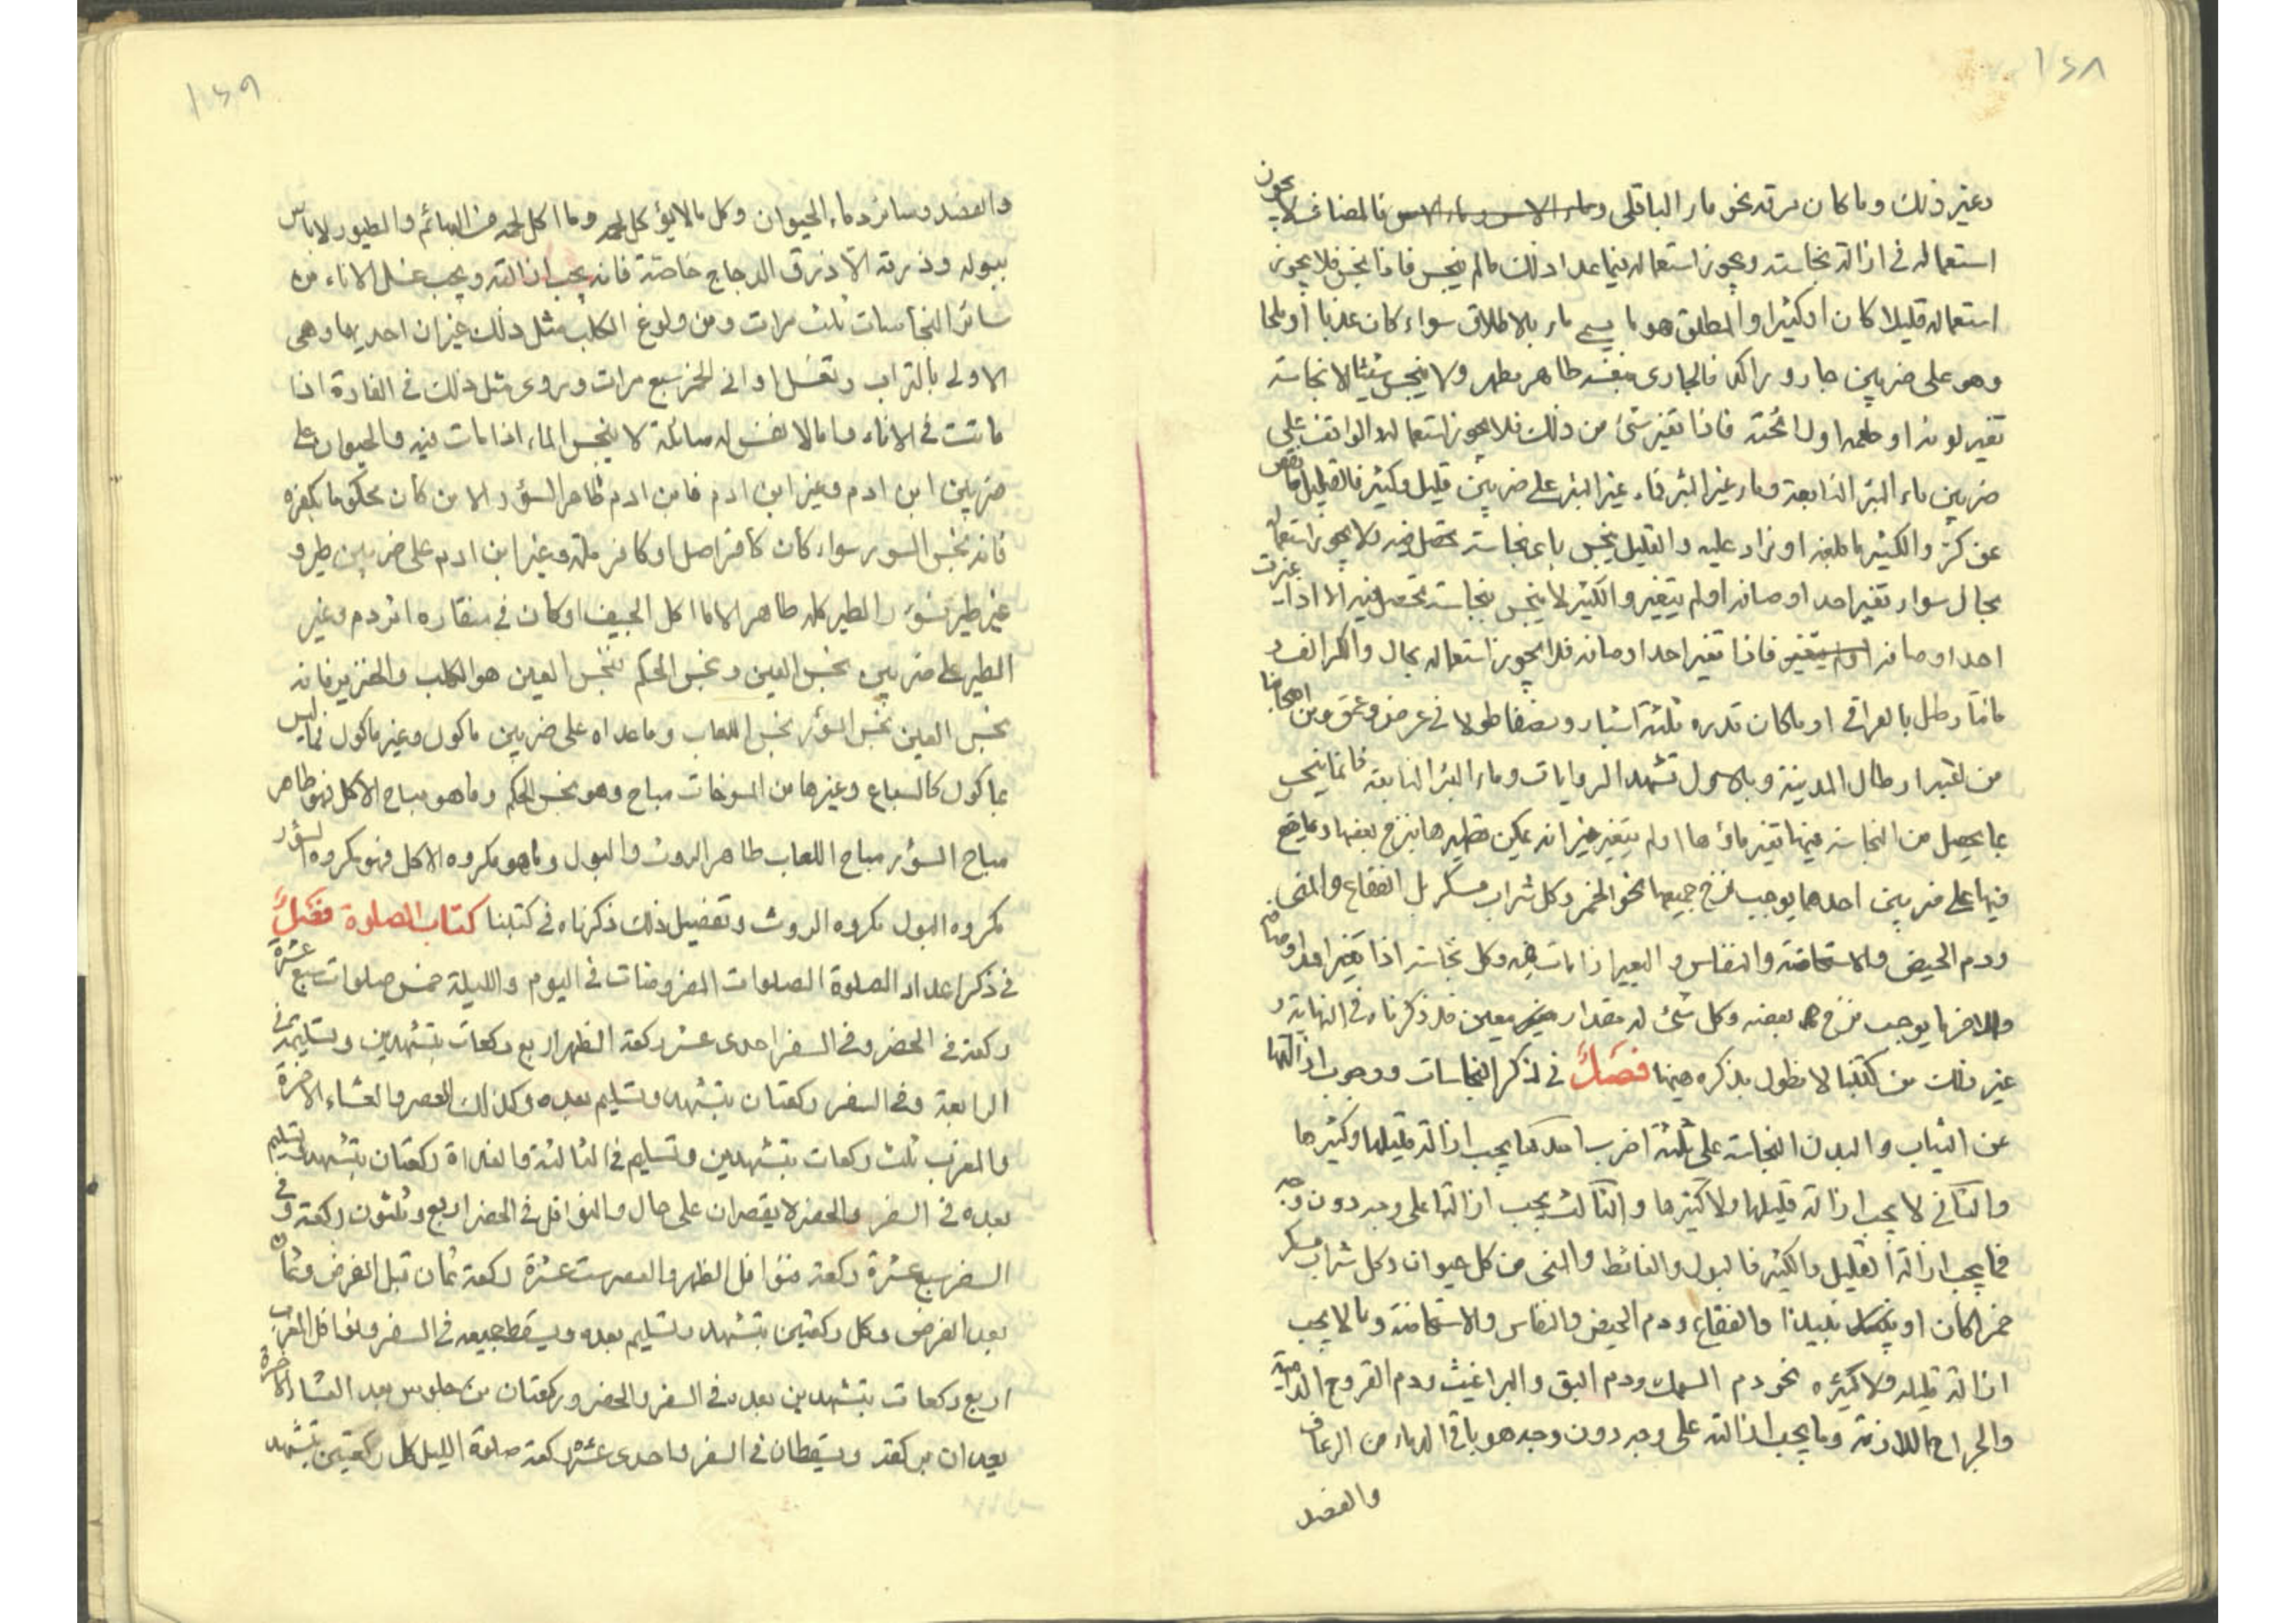 ١٦٨
وغير ذلك وما كان مرقه نحو ماء الباقلى وماء الاس وماء الاس فالمضاف لا يجوز
استعماله في ازالة نجاسته ويجوز استعماله فيما عدا ذلك ما لم ينجس فاذا نجس فلا يجوز
استعماله قليلا كان او كثيرا والمطلق هو ما يسمى ماء بالاطلاق سواء كان عذبا او ملحا
وهو على ضربين جار وراكد فالجارى بنفسه طاهر مطهر ولا ينجس شيئا الا نجاسة
تغير لونه او طعمه او رائحته فاذا تغير شئ من ذلك فلا يجوز استعماله والواقف على
ضربين ماء البئر النابعة وماء غير البئر فماء غير البئر على ضربين قليل وكثير فالقليل ما نقص
عن كر والكثير ما بلغه او زاد عليه والقليل ينجس باى نجاسة تحصل فيه ولا يجوز استعماله
بحال سواء تغير احد اوصافه او لم يتغير والكثير لا ينجس بنجاسة تحصل فيه الا اذا غيرت
احد اوصافه او لم يتغير فاذا تغير احد اوصافه فلا يجوز استعماله بحال والكر الف و
مائتا رطل بالعراقى او ما كان قدره ثلثة اشبار ونصفا طولا فى عرض وعمق ومن اصحابنا
من اعتبر ارطال المدينة وبالاول تشهد الروايات وماء البئر النابعة فانما ينجس
بما يحصل من النجاسة فيها تغير ماؤها او لم يتغير غير انه يمكن تطهيرها بنزح بعضها وما يقع
فيها على ضربين احدهما يوجب نزح جميعها نحو الخمر وكل شراب مسكر بل الفقاع والمنى
ودم الحيض والاستحاضة والنفاس والبعير اذا مات فيه وكل نجاسة اذا تغير احد اوصافه
والاخر ما يوجب نزح بعضه وكل شئ له مقدار معين قد ذكرناه فى النهاية و
غير ذلك من كتبنا لا نطول بذكره هيهنا فصل في ذكر النجاسات ووجوب ازالتها
عن الثياب والبدن النجاسة على ثلثة اضرب احدها يجب ازالة قليلها وكثيرها
والثانى لا يجب ازالة قليلها ولا كثيرها والثالث يجب ازالتها على وجه دون وجه
فما يجب ازالة القليل والكثير فالبول والغائط والمنى من كل حيوان وكل شراب مسكر
خمرا كان او نبيذا والفقاع ودم الحيض والنفاس والاستحاضة وما لا يجب
ازالة قليله ولا كثيره نحو دم السمك ودم البق والبراغيث ودم القروح الدامية
والجراح اللازمة وما يجب ازالته على وجه دون وجه هو باقى الدماء من الرعاف
والفصد
١٦٩
والفصد وسائر دماء الحيوان وكل ما لا يؤكل لحمه وما اكل لحمه من البهائم والطيور لا باس
ببوله وذرقه الا ذرق الدجاج خاصة فانه يجب ازالته ويجب غسل الاناء من
سائر النجاسات ثلث مرات ومن ولوغ الكلب مثل ذلك غير ان احديها وهى
الاولى بالتراب وتغسل اوانى الخمر سبع مرات وروى مثل ذلك فى الفارة اذا
ماتت فى الاناء وما لا نفس له سائلة لا ينجس الماء اذا مات فيه والحيوان على
ضربين ابن ادم وغير ابن ادم فابن ادم طاهر السؤر الا من كان محكوما بكفره
فانه نجس السور سواء كان كافر اصل او كافر ملة وغير ابن ادم على ضربين طير و
غير طير فسؤر الطير كله طاهر الا ما اكل الجيف او كان فى منقاره اثر دم وغير
الطير على ضربين نجس العين ونجس الحكم فنجس العين هو الكلب والخنزير فانه
نجس العين نجس السؤر نجس اللعاب وما عداه على ضربين ماكول وغير ماكول فما ليس
بماكول كالسباع وغيرها من المسوخات مباح وهو نجس الحكم وما هو مباح الاكل فهو طاهر
مباح السؤر مباح اللعاب طاهر الروث والبول وما هو مكروه الاكل فهو مكروه السؤر
مكروه البول مكروه الروث وتفصيل ذلك ذكرناه فى كتبنا كتاب الصلوة فصل
فى ذكر اعداد الصلوة الصلوات المفروضات فى اليوم والليلة خمس صلوات سبع عشرة
ركعة فى الحضر وفى السفر احدى عشر ركعة الظهر اربع ركعات بتشهدين وتسليم فى
الرابعة وفى السفر ركعتان بتشهد وتسليم بعده وكذلك العصر والعشاء الاخرة
والمغرب ثلث ركعات بتشهدين وتسليم فى الثالثة والغداة ركعتان بتشهد وتسليم
بعده فى السفر والحضر لا يقصران على حال والنوافل فى الحضر اربع وثلثون ركعة وفى
السفر سبع عشرة ركعة فنوافل الظهر والعصر ست عشرة ركعة ثمان قبل الفرض وثمان
بعد الفرض وكل ركعتين بتشهد وتسليم بعده ويسقط جميعه فى السفر ونوافل المغرب
اربع ركعات بتشهدين بعده فى السفر والحضر وركعتان من جلوس بعد العشاء الاخرة
يعدان بركعة ويسقطان فى السفر واحدى عشرة ركعة صلوة الليل كل ركعتين بتشهد